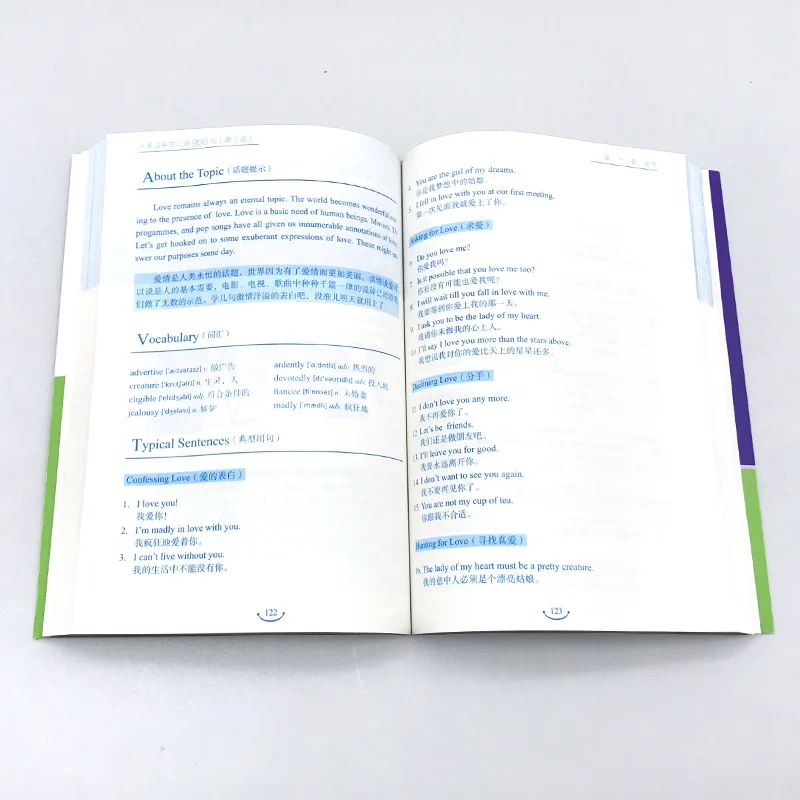 900句
About the Topic（话题提示）
Love remains always an eternal topic. The world becomes wonderful ow-
ing to the presence of love. Love is a basic need of human beings. Movies, TV
progammes, and pop songs have all given us innumerable annotations of love.
Let's get hooked on to some exuberant expressions of love. These might an-
swer our purposes some day.
爱情是人类永恒的话题，世界因为有了爱情而更加美丽。谈情说爱可
以说是人的基本需要，电影、电视、歌曲中种种千篇一律的说辞已经给我
们做了无数的示范。学几句激情洋溢的表白吧，没准儿明天就用上了
Vocabulary（词汇）
advertise n. 做广告
creature n. 生灵，人
eligible adj. 符合条件的
jealousy n. 嫉妒
ardently adv. 热烈的
devotedly adv. 投入地
fiancee n. 未婚妻
madly adv. 疯狂地
Typical Sentences（典型用句）
Confessing Love（爱的表白）
1. I love you!
我爱你！
2. I'm madly in love with you.
我疯狂地爱着你。
3. I can't live without you.
我的生活中不能没有你。
122
4. You are the girl of my dreams.
你是我梦想中的姑娘。
5. I fell in love with you at our first meeting.
第一次见面我就爱上了你。
Asking for Love（求爱）
6. Do you love me?
你爱我吗？
7. Is it possible that you love me too?
你有没有可能也爱我呢？
8. I will wait till you fall in love with me.
我要等到你爱上我的那一天。
9. I ask you to be the lady of my heart.
我请你来做我的心上人。
10. I'll say I love you more than the stars above.
我想说我对你的爱比天上的星星还多。
Declining Love（分手）
11. I don't love you any more.
我不再爱你了。
12. Let's be friends.
我们还是做朋友吧。
13. I'll leave you for good.
我要永远离开你。
14. I don't want to see you again.
我不要再见你了。
15. You are not my cup of tea.
你跟我不合适。
Hunting for Love（寻找真爱）
16. The lady of my heart must be a pretty creature.
我的意中人必须是个漂亮姑娘。
123